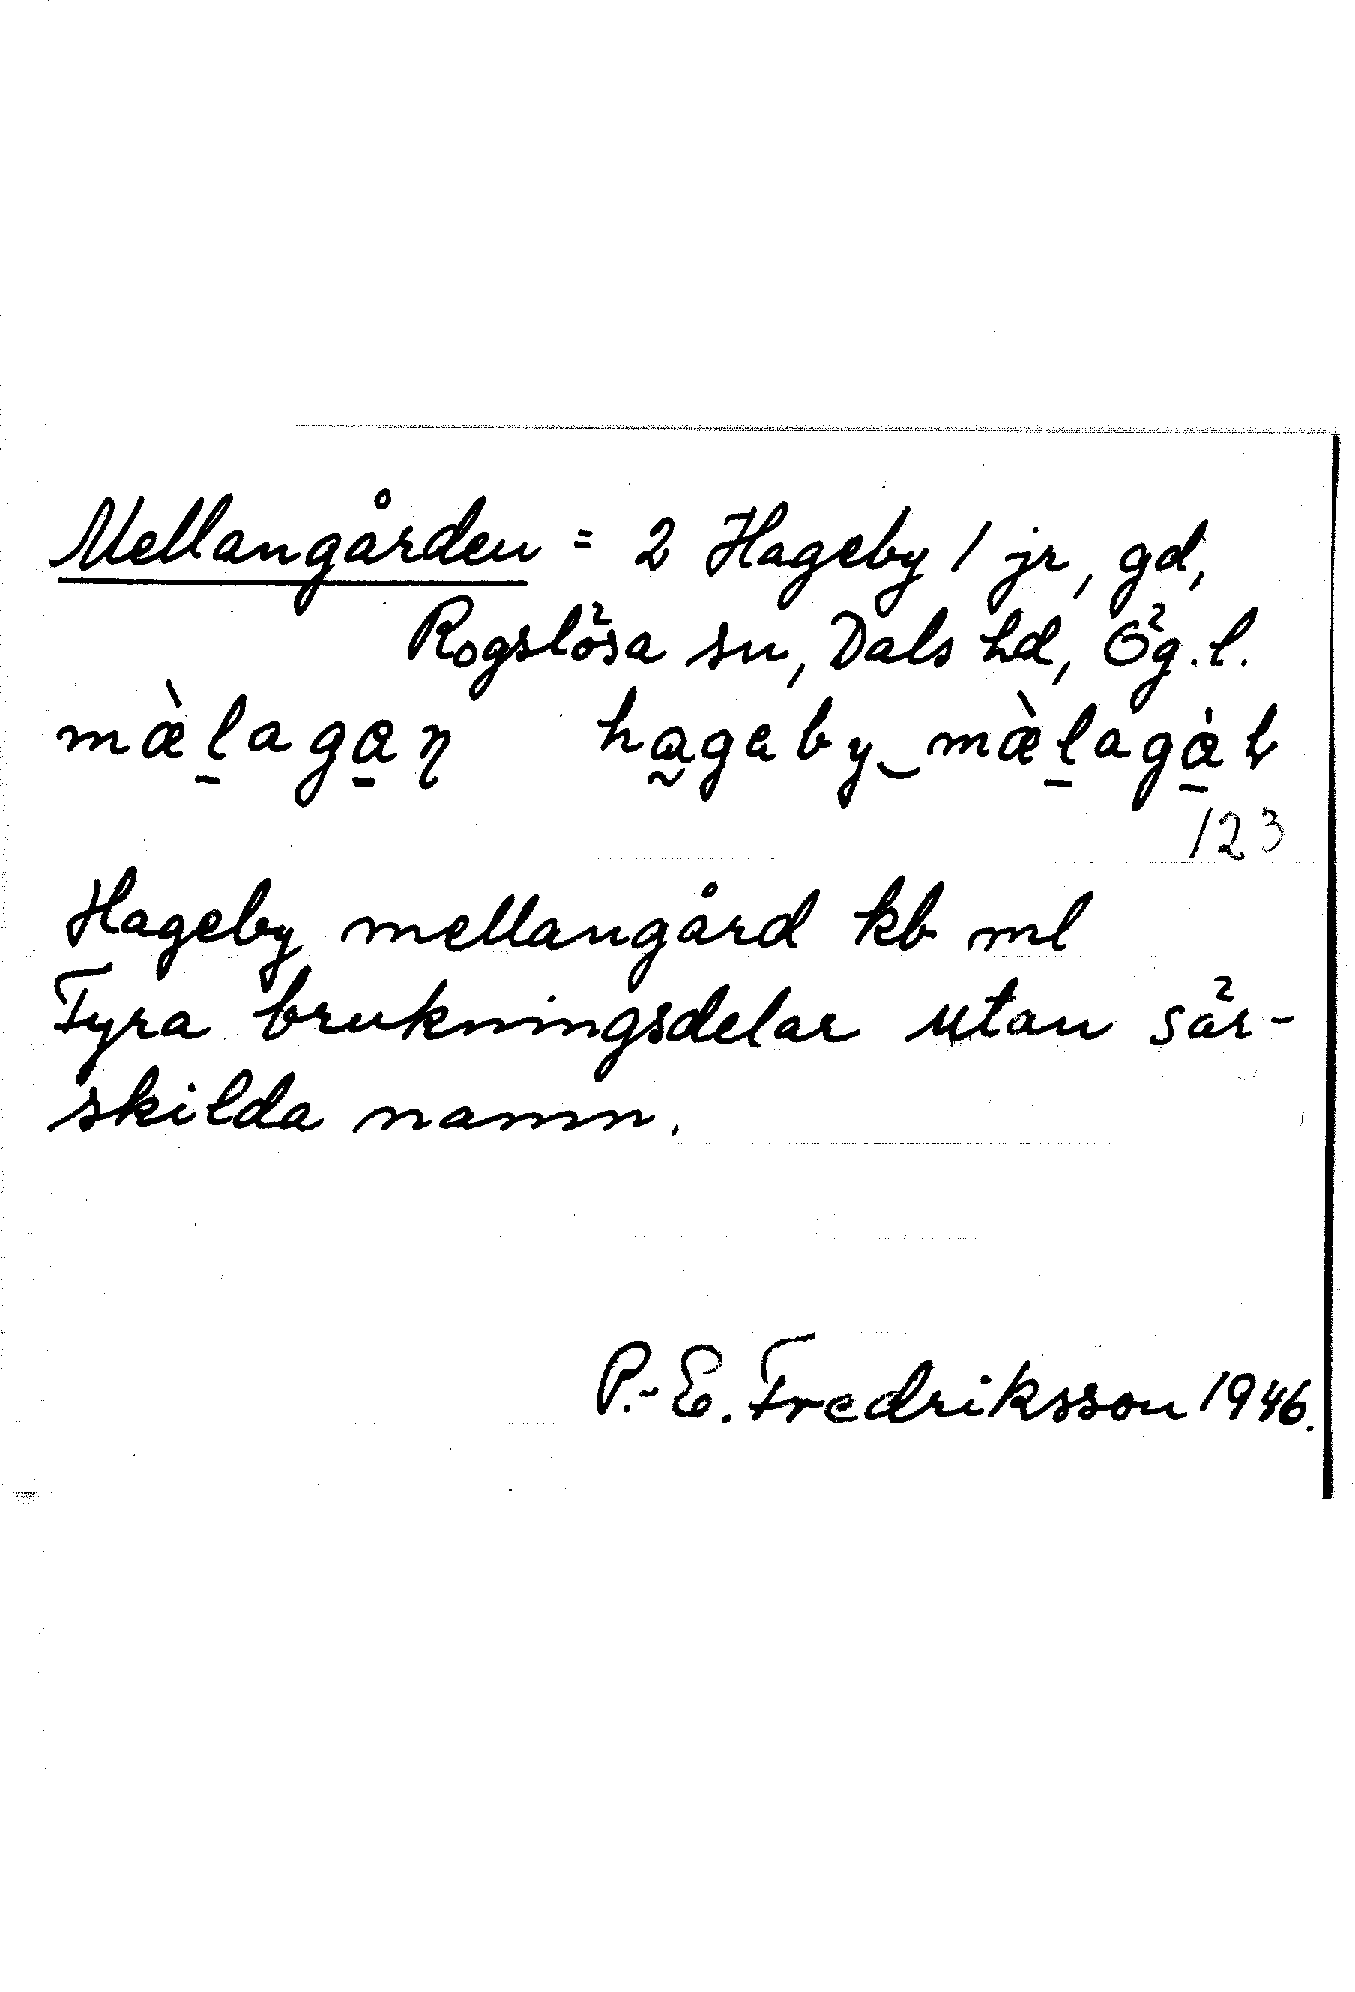 Mellangården = 2 Hageby 1 jr, gd,
Rogslösa sn, Dals hd, Ög.l.
123
Hageby mellangård kb ml
Fyra brukningsdelar utan sär-
skilda namn.
P.-E. Fredriksson 1946.